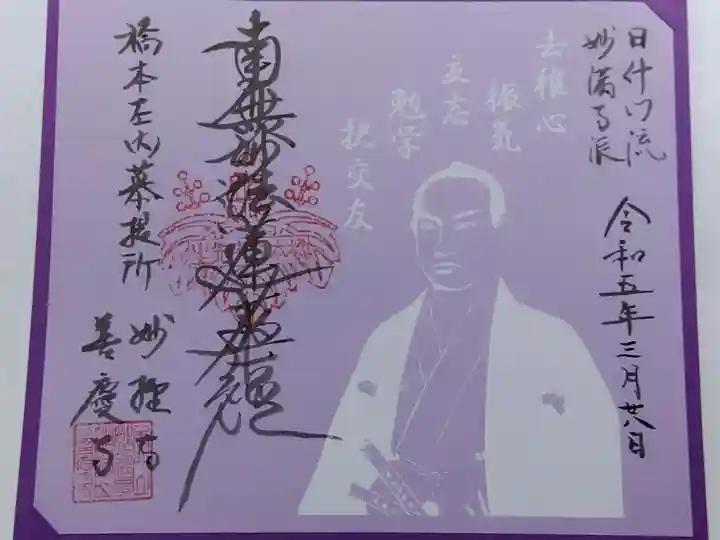 日什門流
妙満寺派
令和五年三月廿八日
去稚心
振気
立志
勉学
択交友
南無妙法蓮華経
橋本左内菩提所
妙経寺
善慶寺